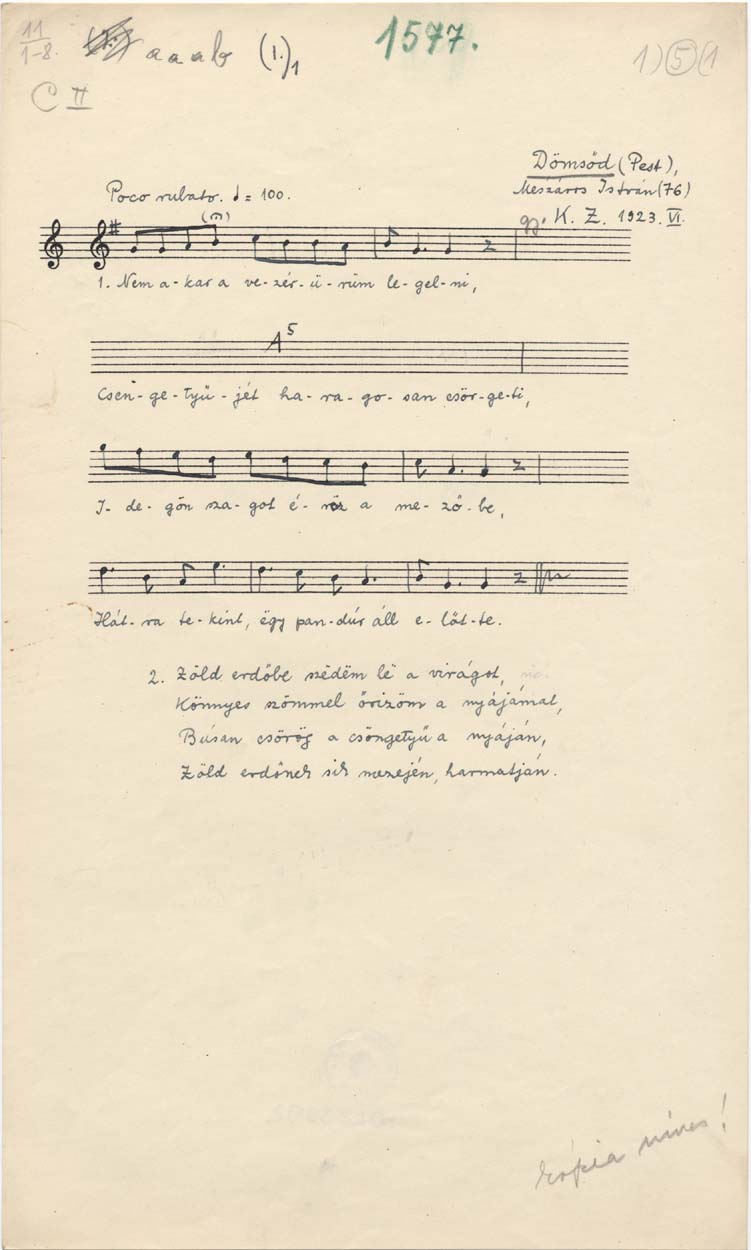 11
1-8.
a a a b (1.)1
1577.
1) 5 (1
C II
Dömsöd (Pest),
Mészáros István (76)
gy. K. Z. 1923. VI.
Poco rubato. ♩ = 100.
1. Nem a-kar a ve-zér-ü-rüm le-gel-ni,
A5
Csen-ge-tyű-jét ha-ra-go-san csör-ge-ti,
I-de-gön sza-got é-röz a me-ző-be,
Hát-ra te-kint, ëgy pan-dúr áll e-lőt-te.
2. Zöld erdőbe szedëm lë a virágot,
Könnyes szömmel őrizöm a nyájamat,
Búsan csörög a csöngetyű a nyáján,
Zöld erdőnek sík mezején, harmatján.
kópia nincs!